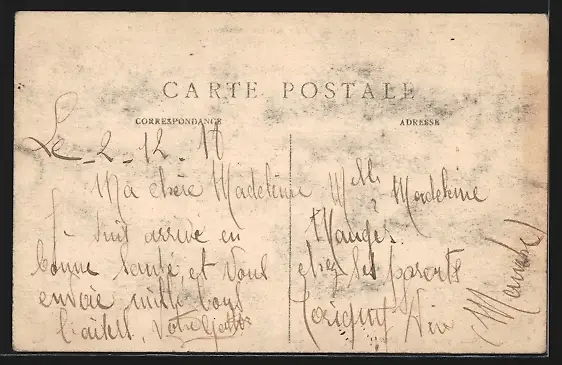 CARTE POSTALE
CORRESPONDANCE
ADRESSE
Le 2-12-17
Ma chère Madeleine
Je suit arrivé en
bonne santé, et vous
envoie mille bons
baisers, votre
Mlle Madeleine
Mauger
chez ses parents
Torigny Vire
(Manche)